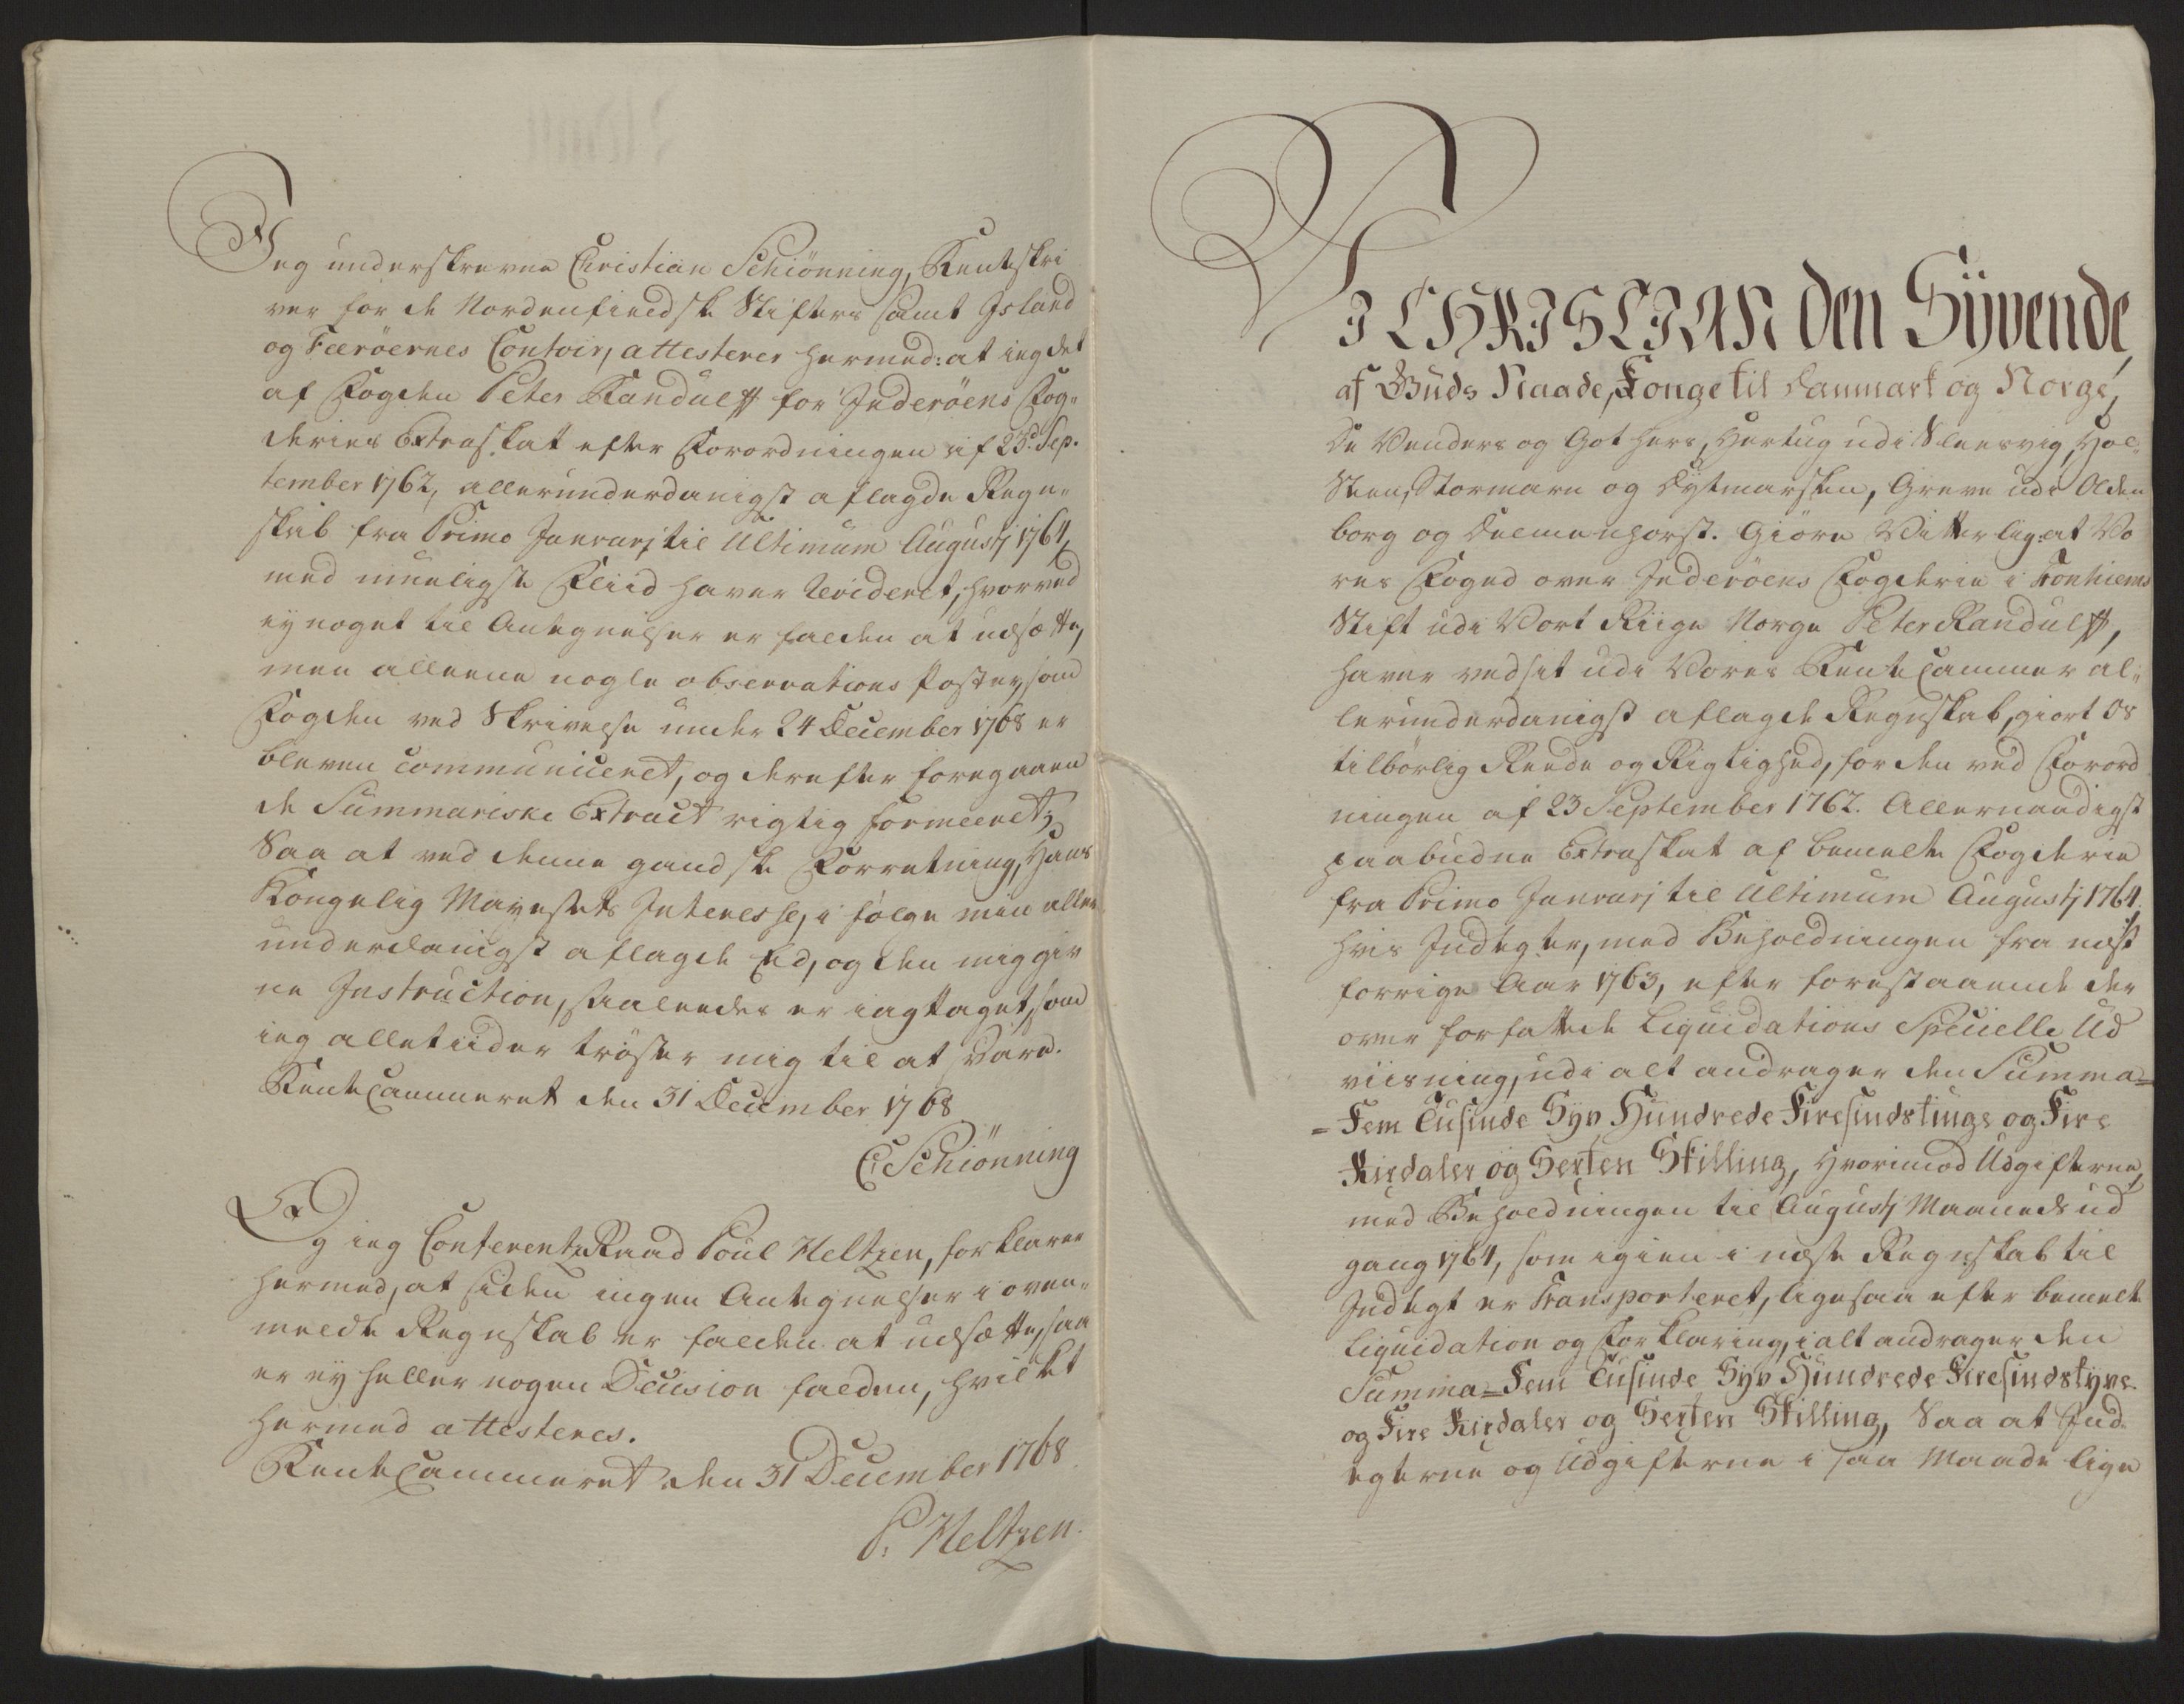 Jeg underskrevne Christian Schiönning, Renteskri
ver for de Nordenfieldske Stifters samt Jsland
og Færöernes Contoir, attesterer hermed: at ieg det
af Fogden Peter Randulff for Inderöens Fog-
deries Extraskat efter Forordningen af 23d. Sep-
tember 1762, allerunderdanigst aflagde Regn-
skab fra Primo Januarj til Ultimum Augustj 1764,
med mueligste Fliid haver Revideret, hvorved
ey noget til Antegnelser er falden at udsætte,
men alleene nogle observations Poster, som
Fogden ved Skrivelse under 24 December 1768 er
bleven communiceret, og derefter foregaaen
de Summariske Extract rigtig formeeret;
Saa at ved denne gandske Forretning, Hans
Kongelig Mayestets Interesse, i følge min aller
underdanigst aflagde Eed, og den mig giv
ne Instruction, saaleedes er iagttaget, som
ieg alletiider tröster mig til at svare.
RenteCammeret den 31 December 1768
C: Schiönning
Og ieg ConferentzRaad Poul Heltzen, forklarer
hermed, at siden ingen Antegnelser i oven-
meldte Regnskab er falden at udsætte, saa
er ey heller nogen Decision falden, hvilket
hermed attesteres.
RenteCammeret den 31 December 1768
P. Heltzen.
VI CHRISTIAN den Syvende,
af Guds Naade, Konge til Danmark og Norge,
De Venders og Gothers, Hertug udi Slesvig, Hol-
steen, Stormarn og Dytmarsken, Greve udi Olden
borg og Delmenhorst. Giöre Vitterligt: at Vo
res Foged over Inderöens Fogderie i Tronhiems
Stift udi Vort Riige Norge Peter Randulff,
haver ved sit udi Vores RenteCammer al-
lerunderdanigst aflagde Regnskab, giort Os
tilbörlig Reede og Rigtighed, for den ved Forord
ningen af 23 September 1762. Allernaadigst
paabudne Extraskat af bemelte Fogderie
fra Primo Januarj til Ultimum Augustj 1764.
hvis Indtegter, med Beholdningen fra næst
forrige Aar 1763, efter forestaaende der
over forfattede Liquidations Specielle Ud
viisning, udi alt andrager den Summa=
=Fem Tusinde Syv Hundrede Firesindstinge og Fire
Rixdaler og Sexten Skilling, Hvorimod Udgifterne,
med Beholdningen til Augustj Maaneds ud
gang 1764, som igien i næste Regnskab til
Indtegt er Transporteret, ligesaa efter bemelte
Liquidation og Forklaring, i alt andrager den
Summa=Fem Tusinde Syv Hundrede Firesindstyve
og Fire Rixdaler og Sexten Skilling, Saa at Ind-
tegterne og Udgifterne i saa Maade lige